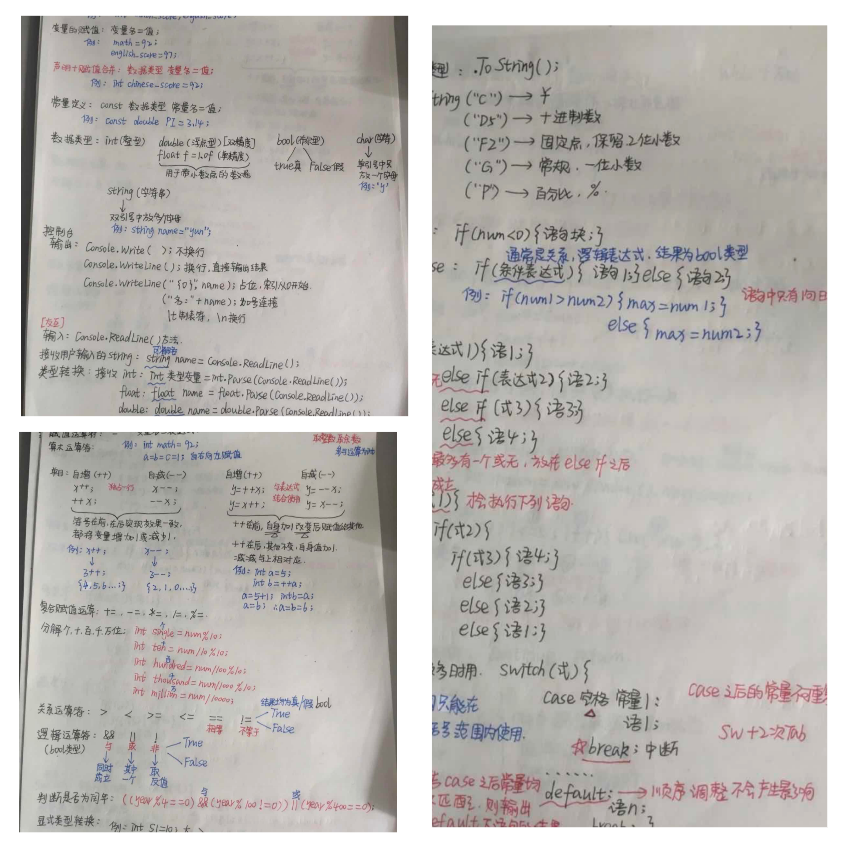 变量的赋值：变量名=值；
例：math=92；
english_score=97；
声明+赋值合并：数据类型 变量名=值；
例：int chinese_score=92；
常量定义：const 数据类型 常量名=值；
例：const double PI=3.14；
数据类型：int(整型) double(浮点型)[双精度] bool(布尔型) char(字符)
float f=1.0f(单精度) true真 False假 单引号中只放一个字母
用于带小数点的数据 例：'y'
string(字符串)
双引号中放多个字母
例：string name="yun"；
控制台
输出：Console.Write( )；不换行
Console.WriteLine( )；换行，直接输出结果
Console.WriteLine("{0}",name)；占位，索引从0开始.
("名："+name)；加号连接
\t制表符，\n换行
[交互]
输入：Console.ReadLine()方法.
接收用户输入的string：string name=Console.ReadLine()；
类型转换：接收int：int 类型变量=int.Parse(Console.ReadLine())；
float：float name=float.Parse(Console.ReadLine())；
double：double name=double.Parse(Console.ReadLine())；
算术运算符：
例：int math=92；
a=b=c=1；自右向左赋值
单目：自增(++) 自减(--) 自增(++) 自减(--)
x++； x--； y=++x； 与表达式 y=--x；
++x； --x； y=x++； 结合使用 y=x--；
符号在前，在后实现效果一致.
都将变量增加1或减少1.
例：x++； x--；
3++； 3--；
{4,5,6...} {2,1,0...}
++在前，自身加1改变后赋值给其他.
++在后，其他不变，自身值加1.
减：减与上相对应.
例：int a=5；
int b=++a；
a=5+1； int b=a；
a=b； ∴a=b=6；
复合赋值运算：+=，-=，*=，/=，%=.
分解个，十，百，千，万位：int single=num%10；
int ten=num/10%10；
int hundred=num/100%10；
int thousand=num/1000%10；
int million=num/10000；
结果均为真/假 bool
关系运算符：> < >= <= == != True
相等 不等于 False
逻辑运算符：&& || ! True
(bool类型) 与 或 非 False
同时成立 其中一个 取反值
判断是否为闰年：((year%4==0)&&(year%100!=0))||(year%400==0)；
显式类型转换：
型：.ToString()；
tring("C")→￥
("D5")→十进制数
("F2")→固定点，保留2位小数
("G")→常规，一位小数
("P")→百分比，%.
：if(num<0){语句块；}
通常是关系，逻辑表达式，结果为bool类型
se：if(条件表达式){语句1；}else{语句2；}
例：if(num1>num2){max=num1；}
else{max=num2；}
表达式1){语1；}
else if(表达式2){语2；}
else if(式3){语3；}
else{语4；}
最多有一个或无，放在else if之后
1)}才会执行下列语句.
if(式2){
if(式3){语4；}
else{语3；}
else{语2；}
else{语1；}
多时用.switch(式){
case 空格 常量1：
语1；
break；中断
case之后的常量不重
sw+2次Tab
只能在
号范围内使用.
case之后常量均
匹配，则输出
......
default：→顺序调整不会产生影响
语n；
break；}